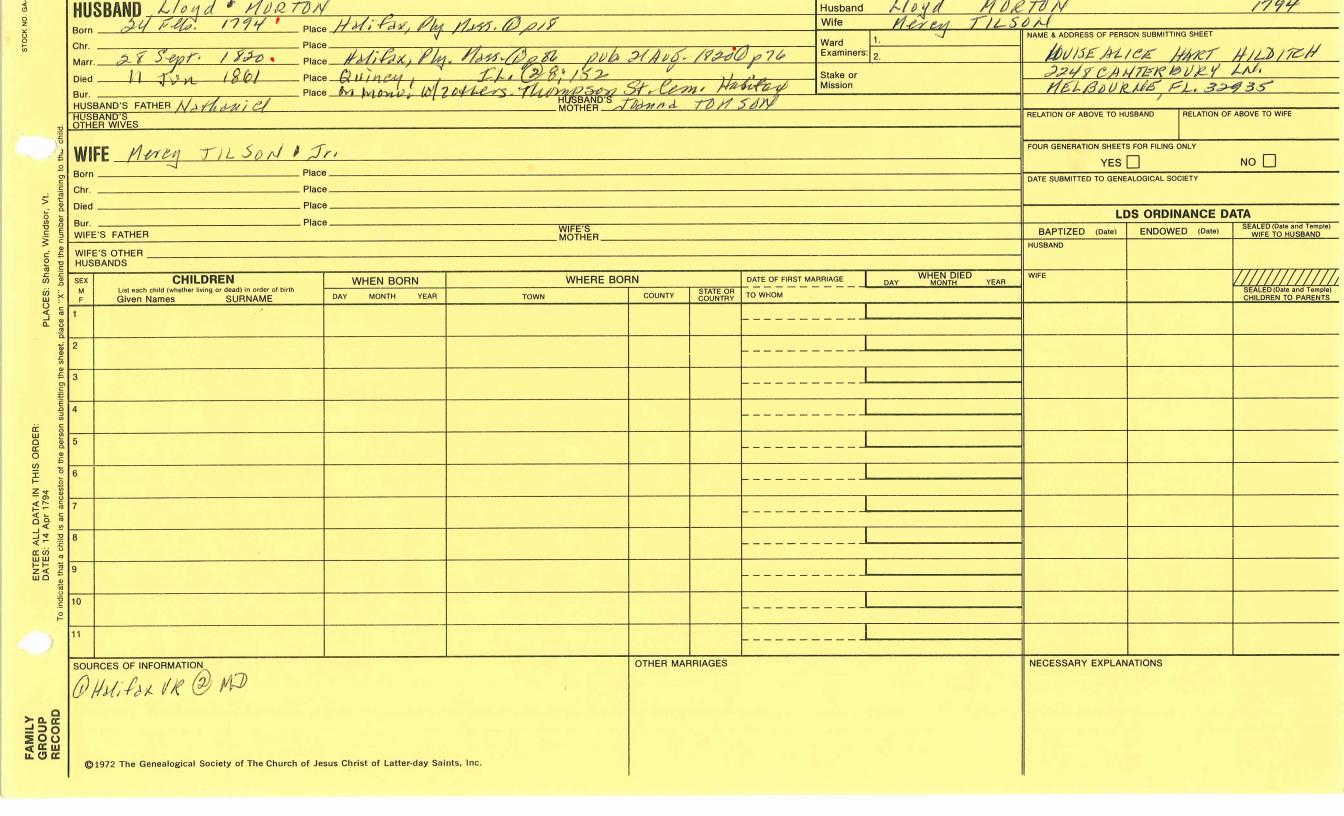 HUSBAND Lloyd MORTON
Born 24 Feb. 1794 Place Halifax, Ply Mass. ① p18
Chr. Place
Marr. 28 Sept. 1820. Place Halifax, Ply. Mass. ① p86 pub 21 Aug. 1820 ① p76
Died 11 Jun 1861 Place Quincy, Il. ② 8:152
Bur. Place on mono. w/2 others. Thompson St. Cem. Halifax
HUSBAND'S FATHER Nathaniel HUSBAND'S MOTHER TOMSON
HUSBAND'S OTHER WIVES
Husband Lloyd MORTON 1794
Wife Mercy TILSON
Ward Examiners: 1.
2.
Stake or Mission
NAME & ADDRESS OF PERSON SUBMITTING SHEET
LOUISE ALICE HART HILDITCH
2248 CANTERBURY LN.
MELBOURNE, FL. 32935
RELATION OF ABOVE TO HUSBAND RELATION OF ABOVE TO WIFE
FOUR GENERATION SHEETS FOR FILING ONLY
YES NO
DATE SUBMITTED TO GENEALOGICAL SOCIETY
WIFE Mercy TILSON Jr.
Born Place
Chr. Place
Died Place
Bur. Place
WIFE'S FATHER WIFE'S MOTHER
WIFE'S OTHER HUSBANDS
LDS ORDINANCE DATA
BAPTIZED (Date) ENDOWED (Date) SEALED (Date and Temple) WIFE TO HUSBAND
HUSBAND
WIFE
SEALED (Date and Temple) CHILDREN TO PARENTS
SEX M F
CHILDREN
List each child (whether living or dead) in order of birth
Given Names SURNAME
WHEN BORN
DAY MONTH YEAR
WHERE BORN
TOWN COUNTY STATE OR COUNTRY
DATE OF FIRST MARRIAGE
TO WHOM
WHEN DIED
DAY MONTH YEAR
1
2
3
4
5
6
7
8
9
10
11
SOURCES OF INFORMATION
① Halifax VR ② MD
OTHER MARRIAGES
NECESSARY EXPLANATIONS
©1972 The Genealogical Society of The Church of Jesus Christ of Latter-day Saints, Inc.
STOCK NO. GA
PLACES: Sharon, Windsor, Vt.
ENTER ALL DATA IN THIS ORDER:
DATES: 14 Apr 1794
To indicate that a child is an ancestor of the person submitting the sheet, place an "X" behind the number pertaining to the child.
FAMILY
GROUP
RECORD